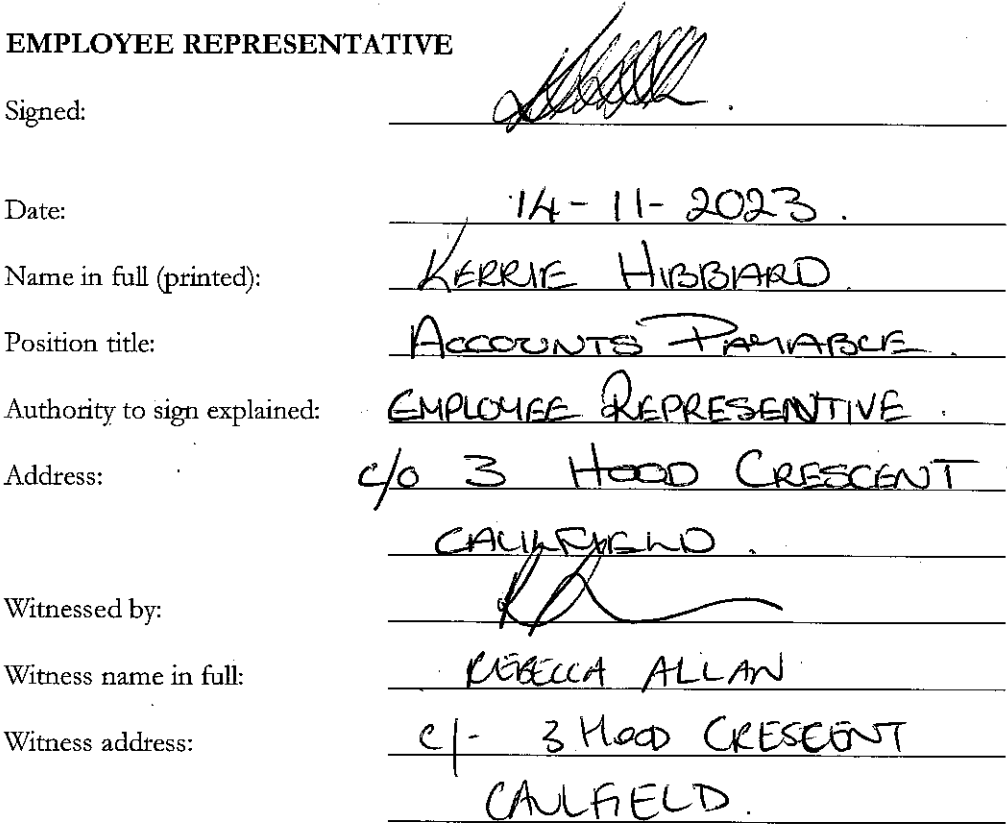 EMPLOYEE REPRESENTATIVE
Signed:
Date: 14-11-2023.
Name in full (printed): KERRIE HIBBIARD.
Position title: ACCOUNTS PAYABLE.
Authority to sign explained: EMPLOYEE REPRESENTIVE.
Address: c/o 3 HOOD CRESCENT
CAULFIELD.
Witnessed by:
Witness name in full: REBECCA ALLAN
Witness address: c/- 3 HOOD CRESCENT
CAULFIELD.